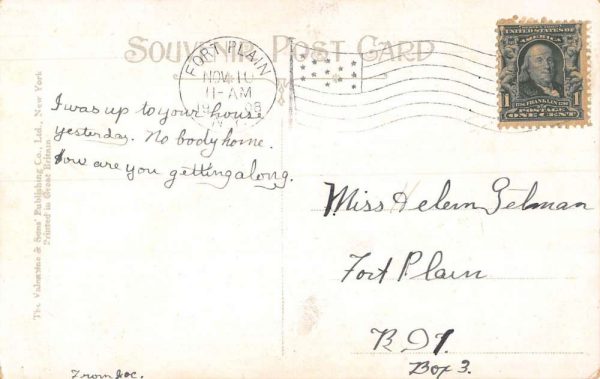 SOUVENIR POST CARD
FORT PLAIN
NOV 10
11-AM
1908
N.Y.
UNITED STATES OF
AMERICA
1 1
FRANKLIN
POSTAGE
ONE CENT
I was up to your house
yesterday. No body home.
How are you getting along.
From Joe.
Miss Helem Gelman
Fort Plain
Box 3.
The Valentine & Sons' Publishing Co., Ltd., New York
Printed in Great Britain